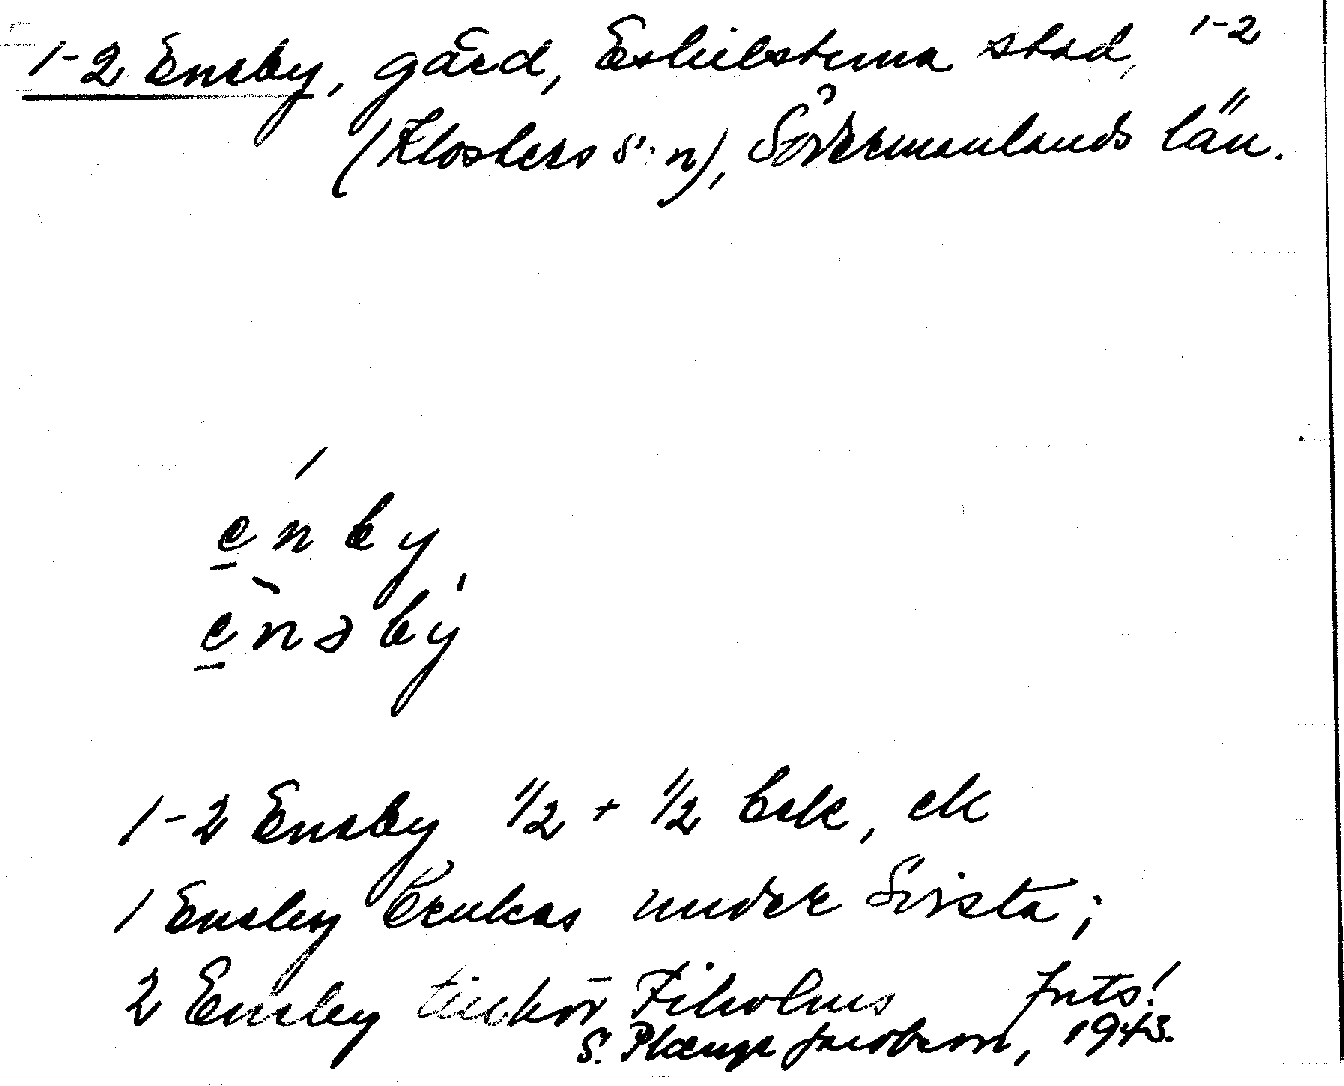 1-2 Ensby, gård, Eskilstuna stad, 1-2
(Klosters s:n), Södermanlands län.
enby
ensby
1-2 Ensby 1/2 + 1/2 brk, ek
1 Ensby brukas under Sirsta;
2 Ensby tillhör Fiholms Jnts!
S. Plænge Jacobson, 1943.